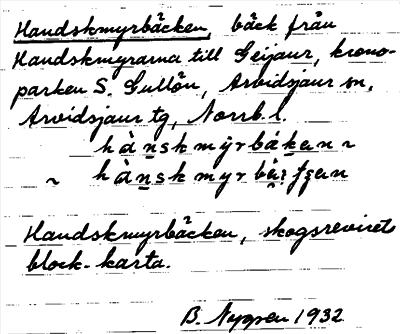 Handskmyrbäcken, bäck från
Handskmyrarna till Geijaur, krono-
parken S. Gullön, Arvidsjaur sn,
Arvidsjaur tg, Norrb. l.
hànskmỳrbäken ~
~ hànskmyrbä
Handskmyrbäcken, skogsrevirets
block-karta.
B. Nygren 1932